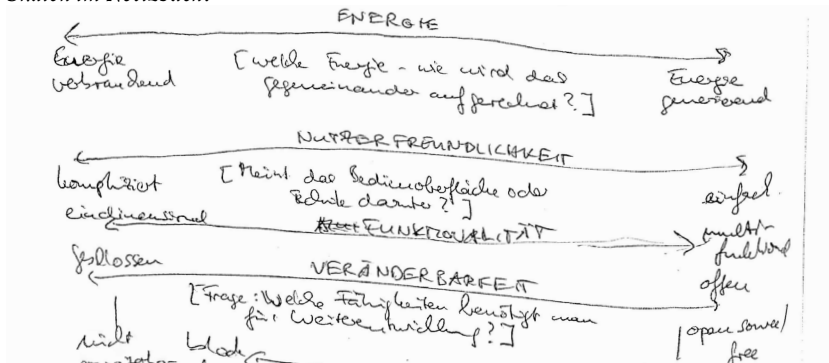 ENERGIE
Energie [welche Energie - wie wird das Energie
verbrauchend gegeneinander aufgerechnet?] generierend
NUTZERFREUNDLICHKEIT
kompliziert [Meint das Bedienoberfläche oder einfach
Technik darunter?]
eindimensional FUNKTIONALITÄT multi-
funktional
geschlossen VERÄNDERBARKEIT offen
[Frage: Welche Fähigkeiten benötigt man
für Weiterentwicklung?] open source/
nicht free